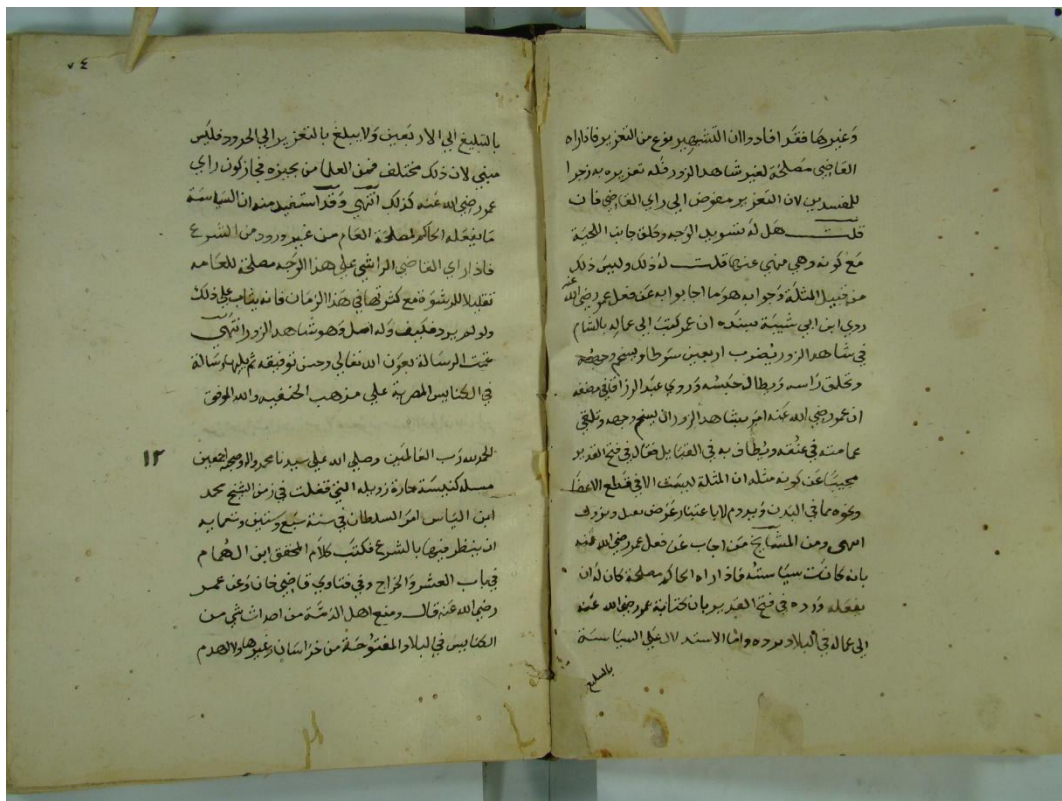 وغيرها فقد افادوا ان التشهير نوع من التعزير فاذا راه
القاضي مصلحة لغير شاهد الزور فله تعزيره به زجرا
للمفسدين لان التعزير مفوض الي راي القاضي فان
قلت هل له تسويد الوجه وحلق جانب اللحية
مع كونه وهي منهي عنها قلت له ذلك وليس ذلك
من قبيل المثلة وجوابه هو ما اجابوا به عن فعل عمر رضي الله عنه
روي ابن ابي شيبة بسنده ان عمر كتب الي عماله بالشام
في شاهد الزور يضرب اربعين سوطا ويسخم وجهه
وتحلق راسه ويطال حبسه وروي عبد الرزاق في مصنفه
ان عمر رضي الله عنه امر بشاهد الزور ان يسخم وجهه وتلقي
عمامته في عنقه ويطاف به في القبايل فقال في فتح القدير
مجيبا عن كونه مثله ان المثلة ليست الا في قطع الاعضا
ونحوه مما في البدن ويدوم لا باعتبار عرض يغسل ويزول
انتهي ومن المشايخ من اجاب عن فعل عمر رضي الله عنه
بانه كانت سياسته فاذا راه الحاكم مصلحة كان له ان
يفعله ورده في فتح القدير بان كتابة عمر رضي الله عنه
الي عماله في البلاد يرده واما الاستدلال علي السياسة
بالتبليغ
٧٤
بالتبليغ الي الاربعين ولا يبلغ بالتعزير الي الحدود فليس
مبني لان ذلك مختلف فمن العلما من يجيزه فجاز كون راي
عمر رضي الله عنه كذلك انتهي وقد استفيد منه ان السياسة
ما يفعله الحاكم لمصلحة العام من غير ورود من الشرع
فاذا راي القاضي الراشي علي هذا الوجه مصلحة للعامه
تقليلا للرشوة مع كثرتها في هذا الزمان فانه يثاب علي ذلك
ولو لم يرد فكيف وله اصل وهو شاهد الزور انتهي
تمت الرسالة بعون الله تعالي وحسن توفيقه ثم يليها رسالة
في الكنايس المصرية علي مذهب الحنفيه والله الموفق
١٢
الحمد لله رب العالمين وصلي الله علي سيدنا محمد واله وصحبه اجمعين
مسله كنيسة حارة زويله التي قفلت في زمن الشيخ محمد
ابن الياس امر السلطان في سنة سبع وستين وتسمايه
ان ينظر فيها بالشرع فكتب كلام المحقق ابن الهمام
في باب العشر والخراج وفي فتاوي قاضي خان وعن عمر
رضي الله عنه قال ومنع اهل الذمة من احداث شي من
الكنايس في البلاد المفتوحة من خراسان وغيرها ولا تهدم